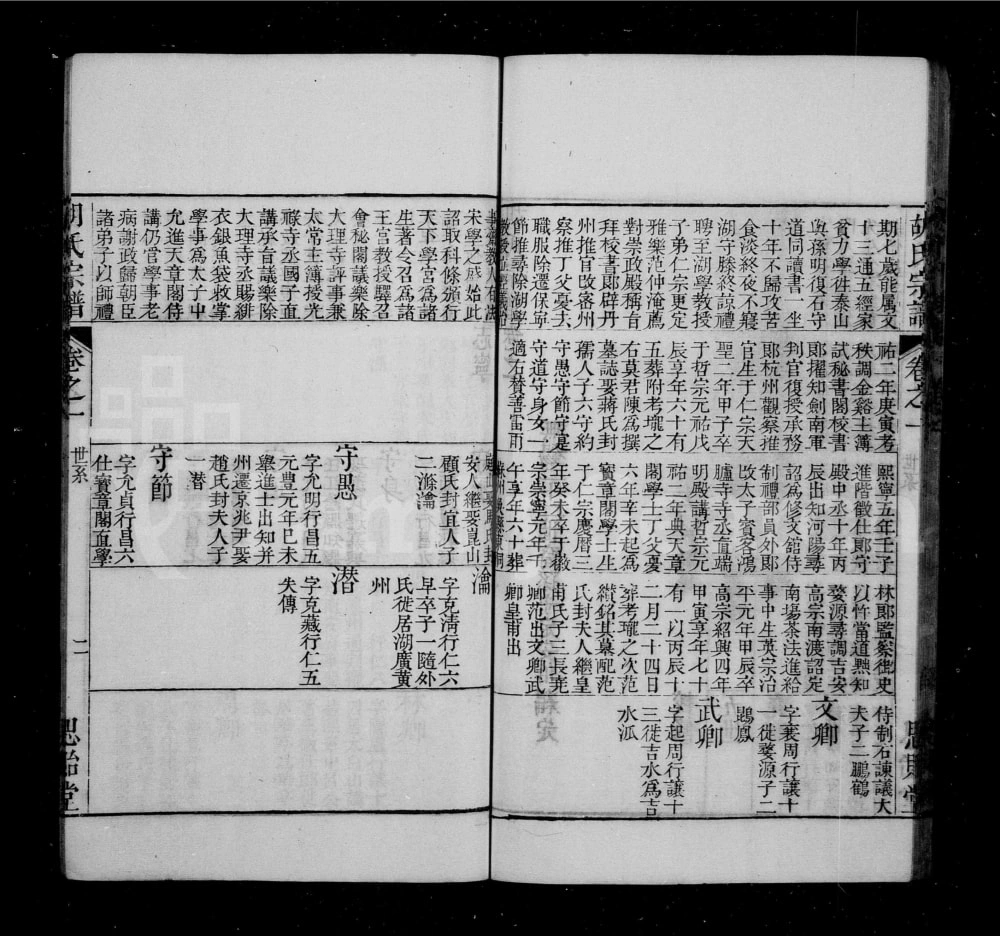 胡氏宗譜
卷之一
思貽堂
期七歲能属文
十三通五經家
貧力學徃泰山
與孫明復石守
道同讀書一坐
十年不歸攻苦
食淡終夜不寢
湖守滕終諒禮
聘至湖學教授
子弟仁宗更定
雅樂范仲淹薦
對崇政殿稱旨
拜校書郞辟丹
州推官改密州
察推丁父憂去
職服除遷保寧
節推尋除湖學
祐二年庚寅考
秩調金谿主薄
試秘書閣校書
郞擢知劍南軍
判官復授承務
郞杭州觀察推
官生于仁宗天
聖二年甲子卒
于哲宗元祐戊
辰享年六十有
五葬附考壠之
右莫君陳爲撰
墓誌娶蔣氏封
孺人子六守約
守愚守節守定
守道守身女一
適右賛善雷雨
熙寧五年壬子
進階徵仕郞守
殿中丞十年丙
辰出知河陽尋
詔爲修文館侍
制禮部員外郞
改太子賓客鴻
臚寺寺丞直端
明殿講哲宗元
祐二年典天章
閣學士丁父憂
六年辛未起爲
寶章閣學士生
于仁宗慶曆三
年癸未卒于徽
宗崇寧元年千
午享年六十葬
林郞監察御史
以忤當道黜知
婺源尋調吉安
高宗南渡詔定
南場茶法進給
事中生英宗治
平元年甲辰卒
高宗紹興四年
甲寅享年七十
有一以丙辰十
二月二十四日
穵考壠之次范
縱銘其墓配范
氏封夫人繼皇
甫氏子三長堯
卿范出文卿武
卿皇甫出
侍制右諌議大
夫子二鵬鶴
文卿
字襄周行讓十
一徙婺源子二
鵾鳳
武卿
字起周行讓十
三徙吉水爲吉
水派
宋學之盛始此
詔取科條頒行
天下學宮爲諸
生著令召爲諸
王宮教授驛召
會秘閣議樂除
大理寺評事兼
太常主簿授光
祿寺丞國子直
講承旨議樂除
大理寺丞賜緋
衣銀魚袋收掌
學事爲太子中
允進天章閣侍
講仍官學事老
病謝政歸朝臣
諸弟子以師禮
安人繼娶崑山
顧氏封宜人子
二滁瀹
守愚
字允明行昌五
元豊元年巳未
舉進士出知并
州遷京兆尹娶
趙氏封夫人子
一潜
守節
字允貞行昌六
仕寶章閣直學
瀹
字克清行仁六
早卒子一隨外
氏徙居湖廣黄
州
潜
字克藏行仁五
失傳
胡氏宗譜
卷之一
世系
二
思貽堂